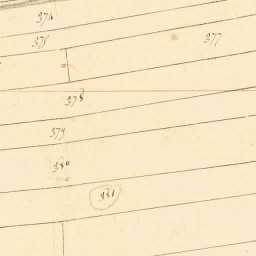 376
375
377
378
379
380
381